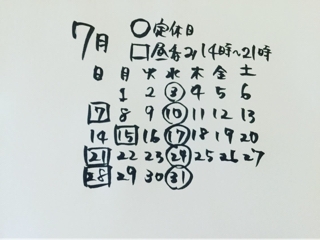 7月 ○定休日
□昼呑み14時〜21時
日 月 火 水 木 金 土
1 2 3 4 5 6
7 8 9 10 11 12 13
14 15 16 17 18 19 20
21 22 23 24 25 26 27
28 29 30 31